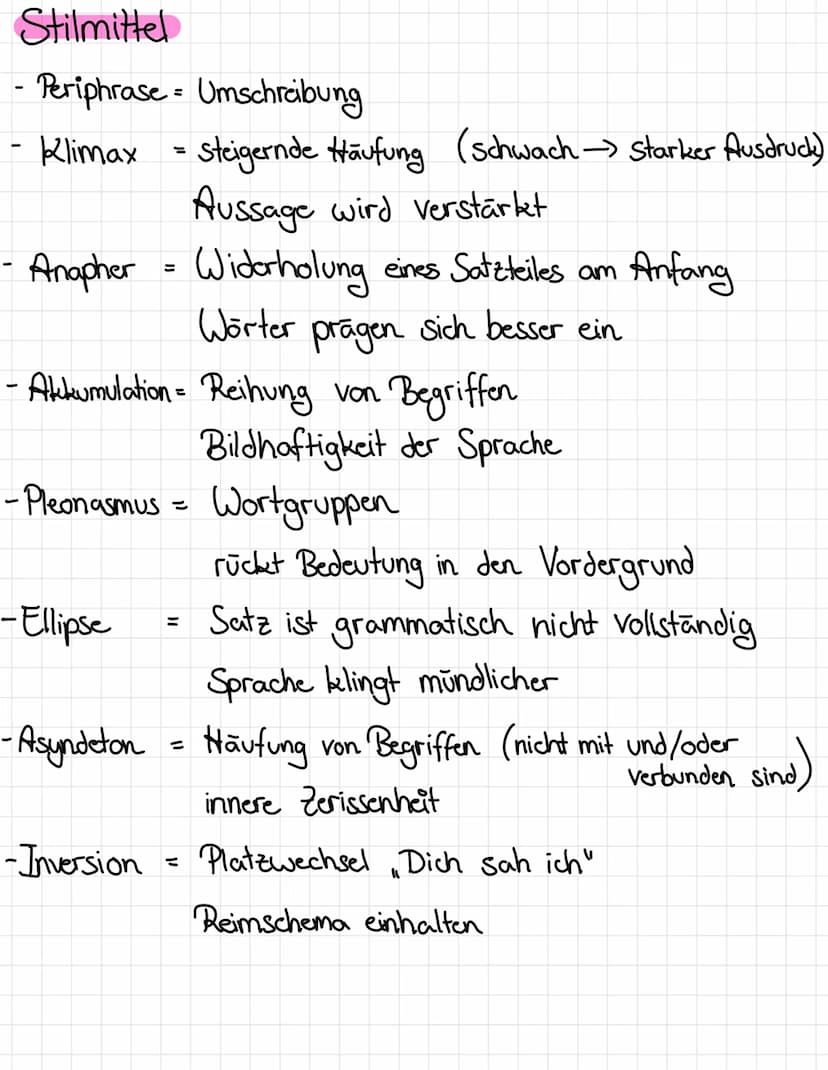 Stilmittel
- Periphrase = Umschreibung
- Klimax = steigernde Häufung (schwach → starker Ausdruck)
Aussage wird verstärkt
- Anapher = Widerholung eines Satzteiles am Anfang
Wörter prägen sich besser ein
- Akkumulation = Reihung von Begriffen
Bildhaftigkeit der Sprache
- Pleonasmus = Wortgruppen
rückt Bedeutung in den Vordergrund
- Ellipse = Satz ist grammatisch nicht vollständig
Sprache klingt mündlicher
- Asyndeton = Häufung von Begriffen (nicht mit und/oder
verbunden sind)
innere Zerissenheit
- Inversion = Platzwechsel „Dich sah ich"
Reimschema einhalten